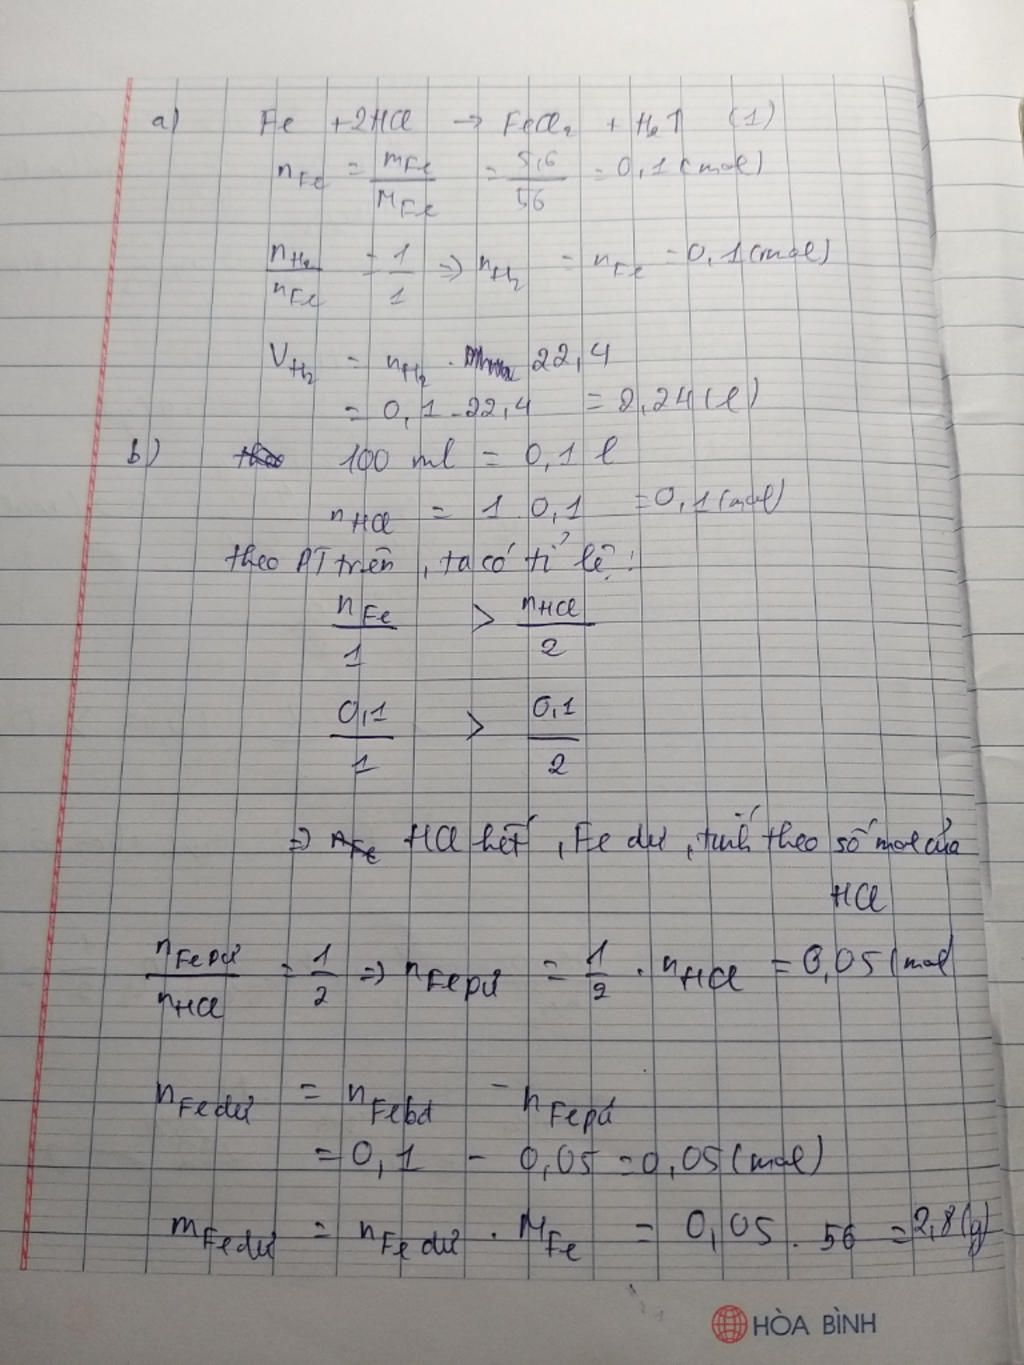 a) Fe + 2HCl → FeCl₂ + H₂↑ (1)
nFe = mFe/MFe = 5,6/56 = 0,1 (mol)
nH₂/nFe = 1/1 ⇒ nH₂ = nFe = 0,1 (mol)
VH₂ = nH₂ . 22,4
= 0,1 . 22,4 = 2,24 (l)
b) 100 ml = 0,1 l
nHCl = 1 . 0,1 = 0,1 (mol)
theo PT trên, ta có tỉ lệ :
nFe/1 > nHCl/2
0,1/1 > 0,1/2
⇒ HCl hết, Fe dư, tính theo số mol của
HCl
nFepứ/nHCl = 1/2 ⇒ nFepứ = 1/2 . nHCl = 0,05 (mol
nFedư = nFebđ - nFepứ
= 0,1 - 0,05 = 0,05 (mol)
mFedư = nFedư . MFe = 0,05 . 56 = 2,8 (g)
HÒA BÌNH